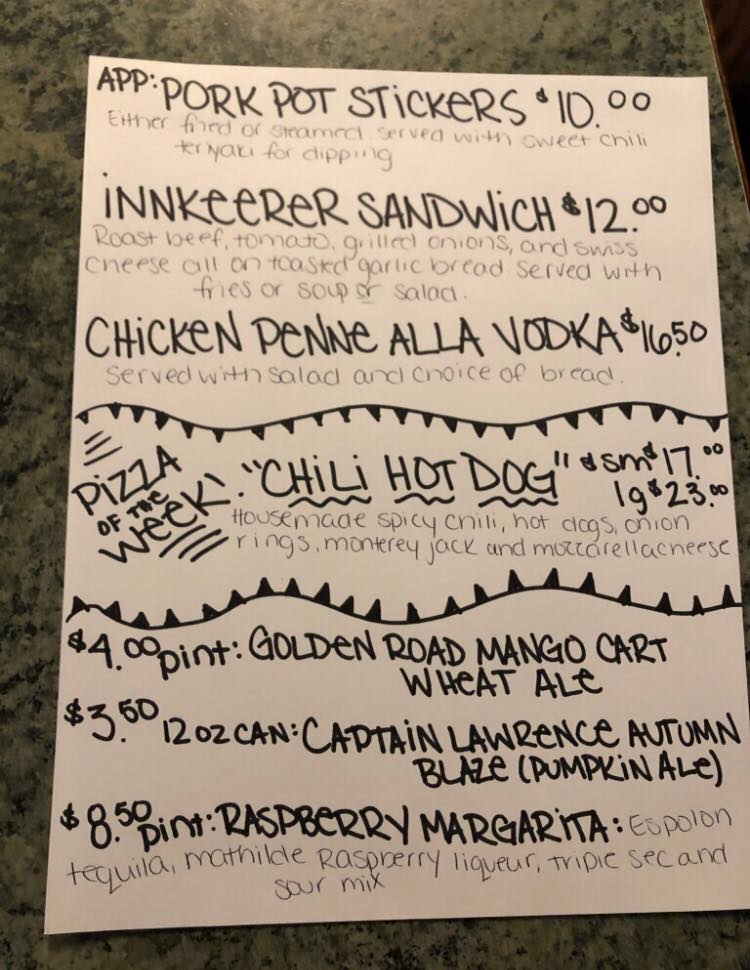 APP: PORK POT STICKERS $10.00
Either fried or steamed served with sweet chili
teriyaki for dipping
INNKEERER SANDWICH $12.00
Roast beef, tomato, grilled onions, and swiss
cheese all on toasted garlic bread served with
fries or soup or salad.
CHICKEN PENNE ALLA VODKA $16.50
Served with salad and choice of bread.
PIZZA OF THE WEEK: "CHILI HOT DOG" sm $17.00
lg $23.00
Housemade spicy chili, hot dogs, onion
rings, monterey jack and mozzarella cheese
$4.00 pint: GOLDEN ROAD MANGO CART
WHEAT ALE
$3.50 12 oz CAN: CAPTAIN LAWRENCE AUTUMN
BLAZE (PUMPKIN ALE)
$8.50 pint: RASPBERRY MARGARITA: Espolon
tequila, mathilde Raspberry liqueur, triple sec and
sour mix